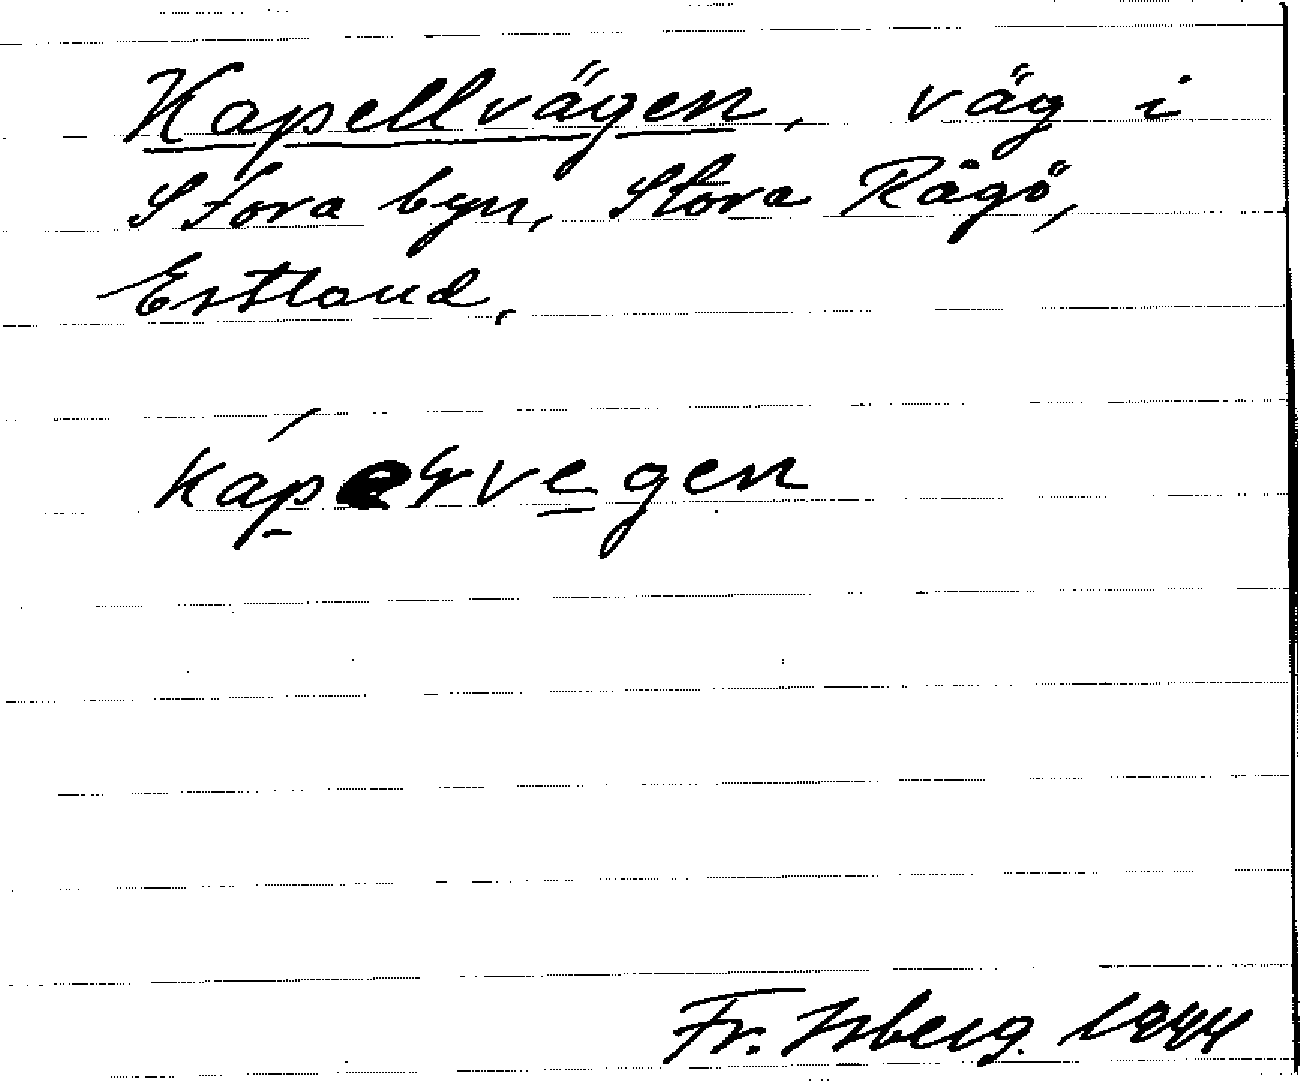 Kapellvägen, väg i
Stora byn, Stora Rågö,
Estland.
Fr. Isberg 1944